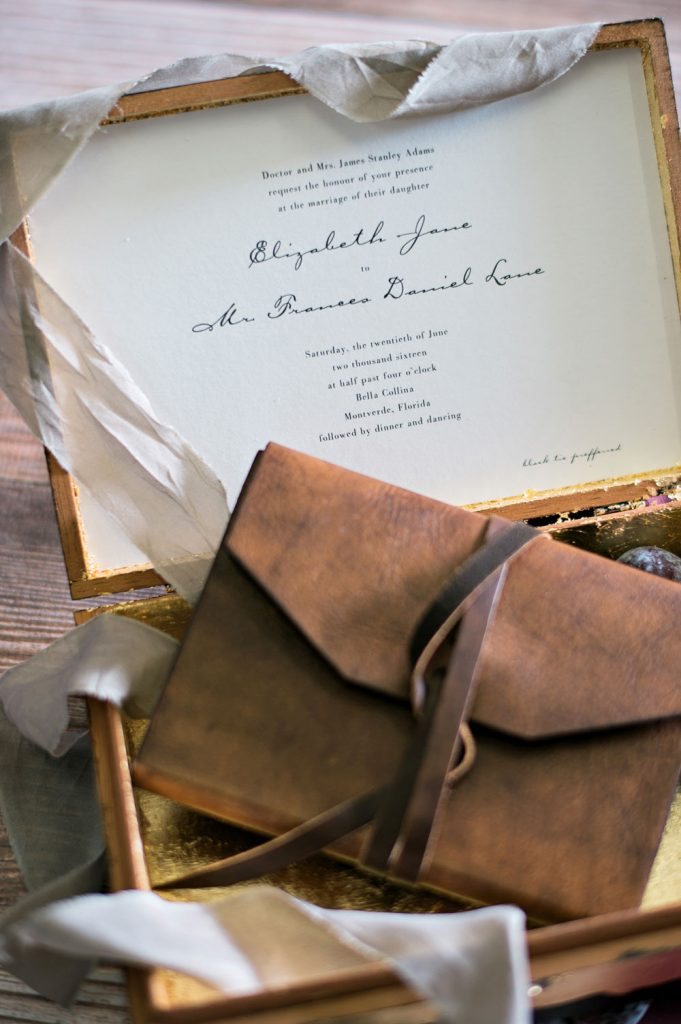 Doctor and Mrs. James Stanley Adams
request the honour of your presence
at the marriage of their daughter
Elizabeth Jane
to
Mr. Frances Daniel Lane
Saturday, the twentieth of June
two thousand sixteen
at half past four o'clock
Bella Collina
Montverde, Florida
followed by dinner and dancing
black tie preffered